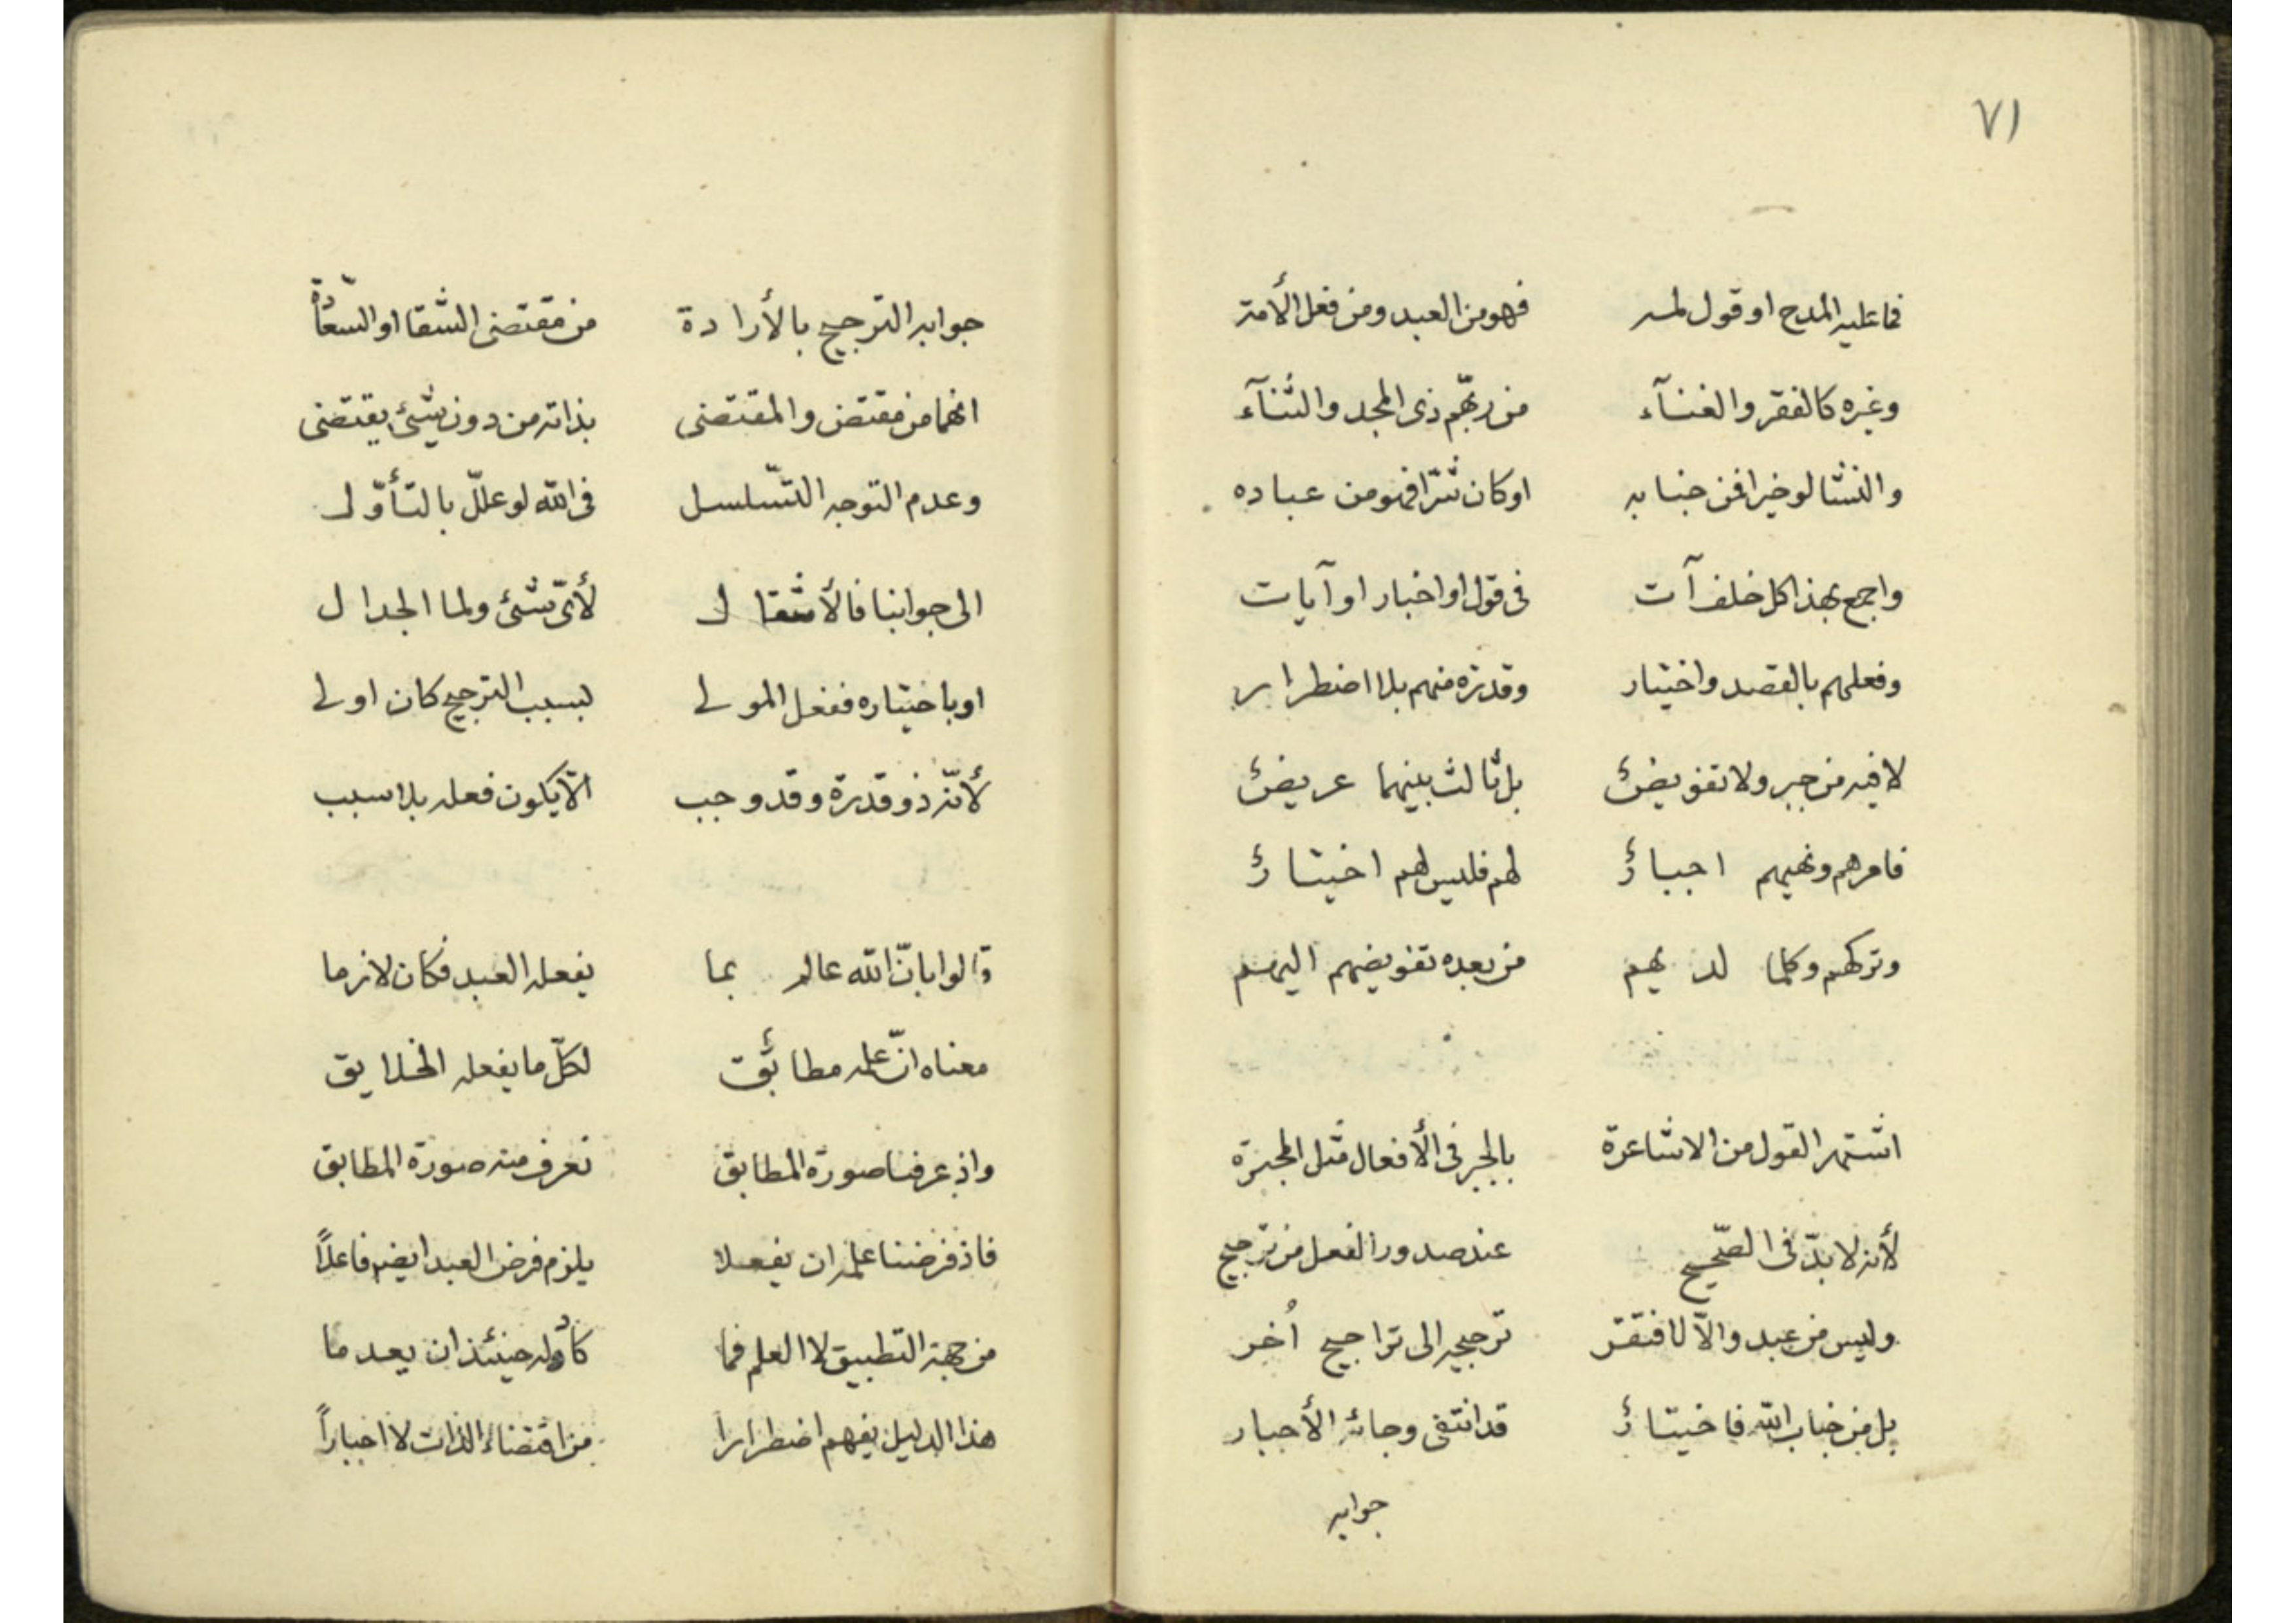 ٧١
فما عليه المدح او قول لمه فهو من العبد ومن فعل الأمة
وغيره كالفقر والغنآء من ربّهم ذى المجد والثنآء
والنشا لو خيرا فمن جنابه او كان شرّا فهو من عباده
واجمع بهذا كل خلف آت فى قول او اخبار او آيات
وفعلهم بالقصد واختيار وقدرة منهم بلا اضطرار
لا فيه من جبر ولا تفويض بل ثالث بينهما عريض
فامرهم ونهيهم اجبار لهم فليس لهم اختيار
وتركهم وكلما لديهم من بعده تفويضهم اليهم
اشتهر القول من الاشاعرة بالجبر فى الأفعال مثل المجبرة
لأنه لا بدّ فى الصّحيح عند صدور الفعل من ترجيح
وليس من عبد والّا لافتقر ترجيحه الى تراجيح أخر
بل من جناب الله فاختيار قد انتفى وجائه الأجبار
جوابه
جوابه الترجيح بالأرادة من مقتضى الشقا او السّعادة
انهما من مقتض والمقتضى بذاته من دون شىء يقتضى
وعدم التوجه التّسلسل فى الله لو علّل بالتأوّل
الى جوابنا فالأشقال لأىّ شىء ولما الجدال
او باختياره ففعل المولى لسبب الترجيح كان اولى
لأنّه ذو قدرة وقد وجب الّا يكون فعله بلا سبب
قالوا بانّ الله عالم بما يفعله العبد فكان لازما
معناه انّ علمه مطابق لكلّ ما يفعله الخلايق
واذ عرفنا صورة المطابق نعرف منه صورة المطابق
فاذ فرضنا علمه ان يفعلا يلزم فرض العبد ايضا فاعلاً
من جهة التطبيق لا العلم فما كاد له حينئذ ان يعدما
هذا الدليل يفهم اضطرارا من اقتضاء الذات لا اجباراً